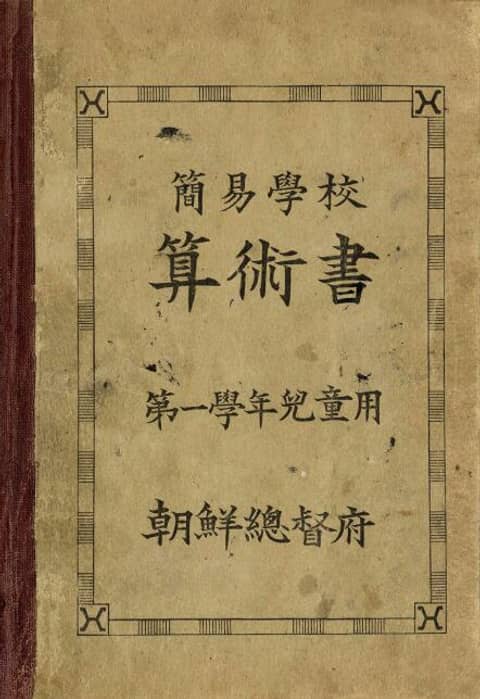 簡易學校
算術書
第一學年兒童用
朝鮮總督府